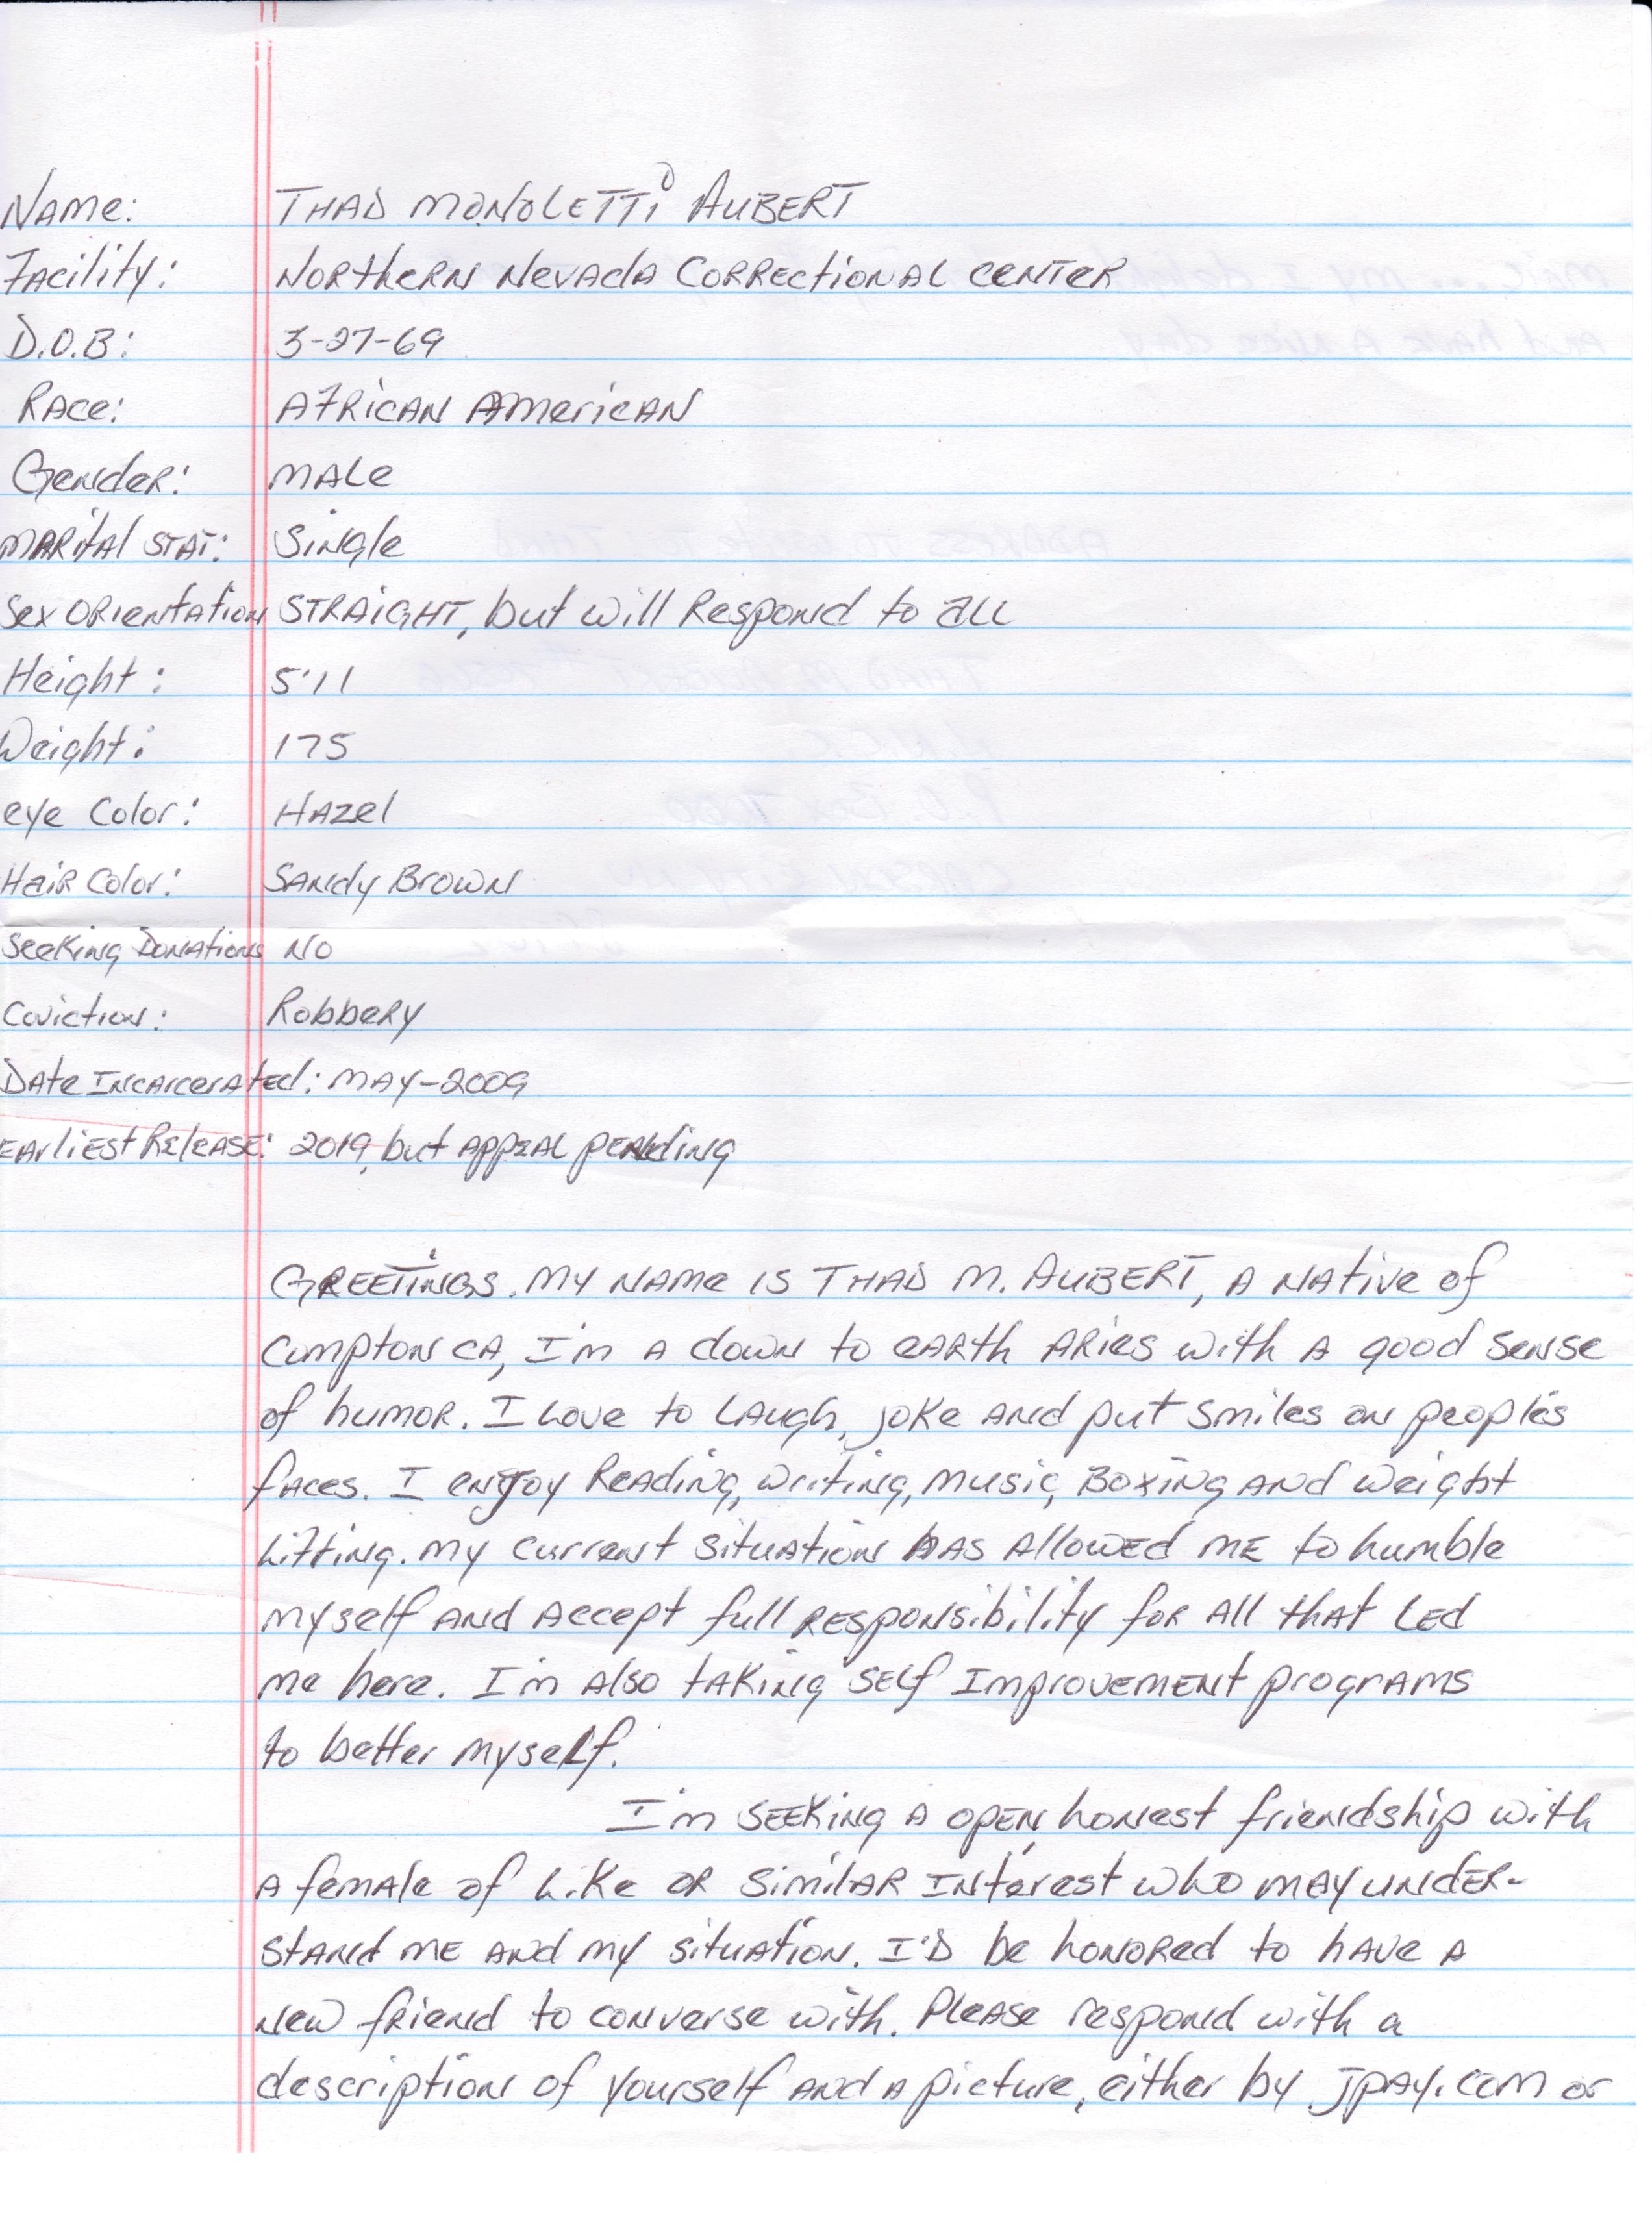 Name: THAD MONOLETTI AUBERT
Facility: Northern Nevada Correctional Center
D.O.B: 3-27-69
Race: African American
Gender: Male
Marital Stat: Single
Sex Orientation STRAIGHT, but will Respond to all
Height: 5'11
Weight: 175
eye Color: Hazel
Hair Color: Sandy Brown
Seeking Donations No
Coviction: Robbery
Date Incarcerated: May-2009
Earliest Release: 2019, but appeal pending
GREETINGS. My name is THAD M. AUBERT, a native of
Compton CA, I'm a down to earth Aries with a good sense
of humor. I Love to Laugh, joke and put smiles on people's
faces. I enjoy Reading, writing, music, Boxing and weight
Lifting. My current situation has allowed me to humble
myself and accept full responsibility for all that Led
me here. I'm also taking self Improvement programs
to better myself.
I'm seeking a open, honest friendship with
a female of Like or similar Interest who may under-
stand me and my situation. I'd be honored to have a
new friend to converse with. Please respond with a
description of yourself and a picture, either by jpay.com or